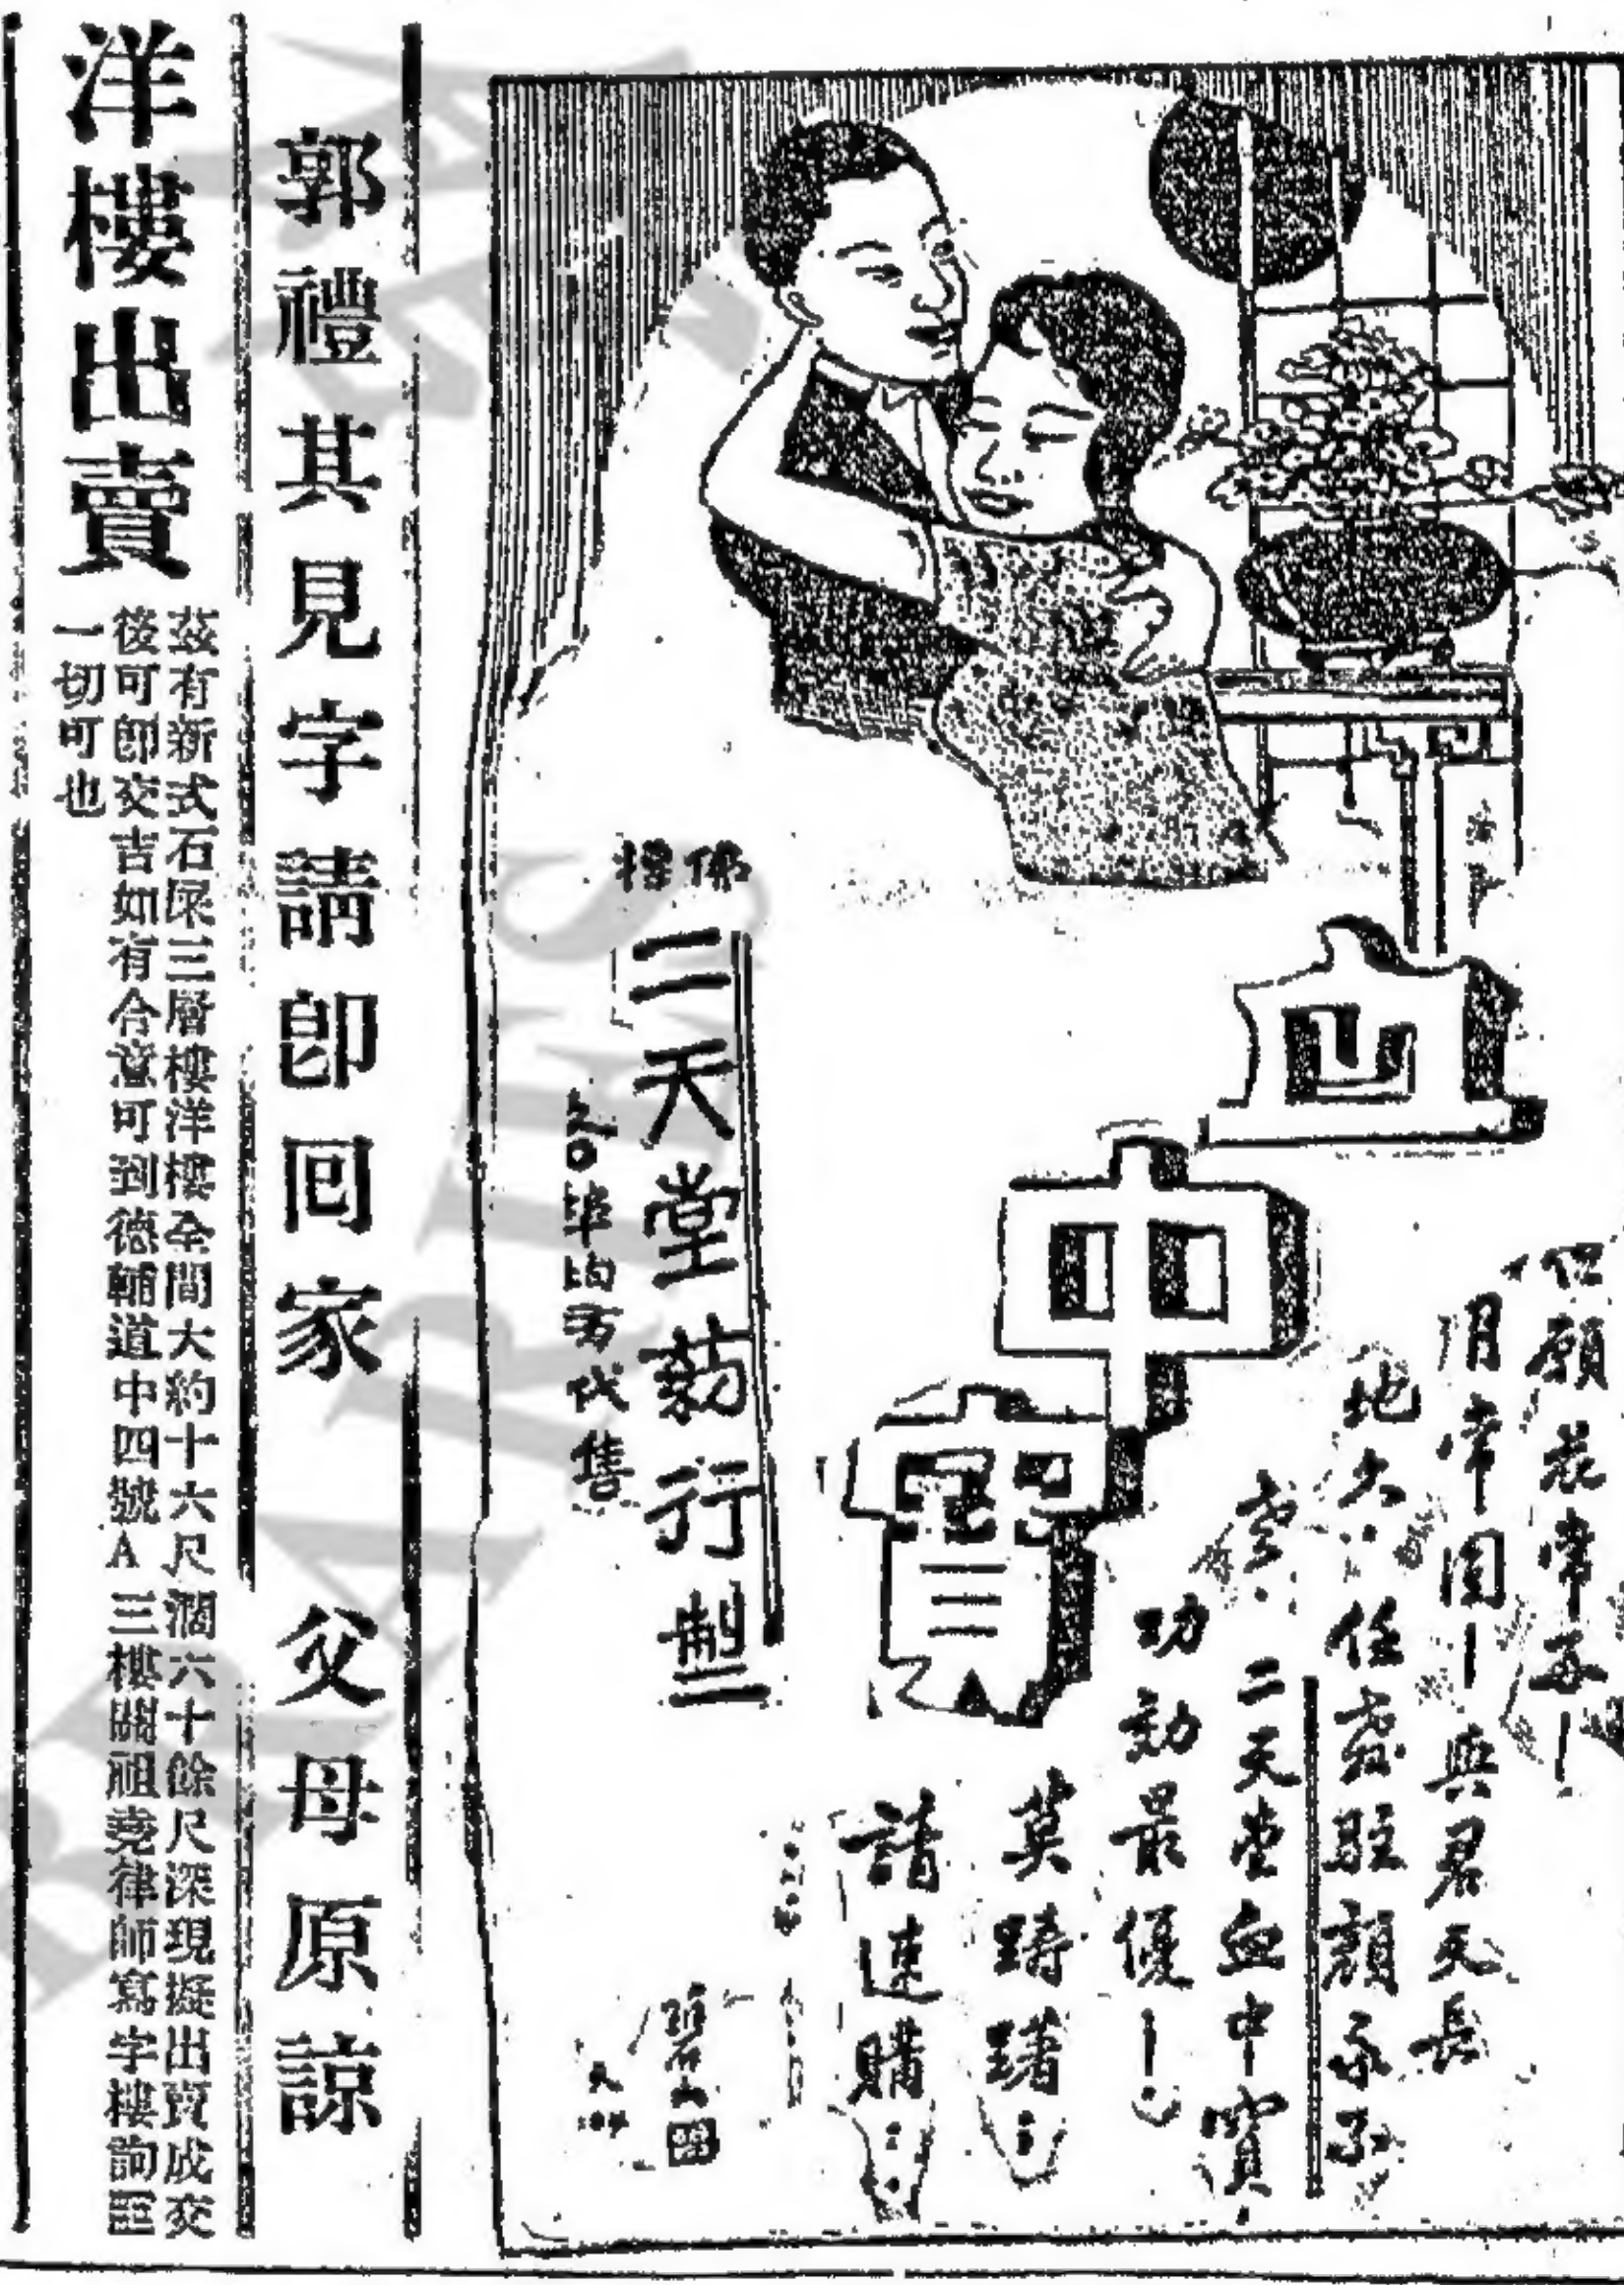 但願花常好
月常圓｜與君天長
地久任意駐顏永永
二天堂血中寶
功効最優｜
莫躊躇
請速購
血中寶
佛標
二天堂葯行製
各埠均有代售
郭禮其見字請卽回家 父母原諒
洋樓出賣
茲有新式石屎三層樓洋樓全間大約十六尺濶六十餘尺深現擬出賣成交
後可卽交吉如有合意可到德輔道中四號A三樓關祖堯律師寫字樓詢問
一切可也